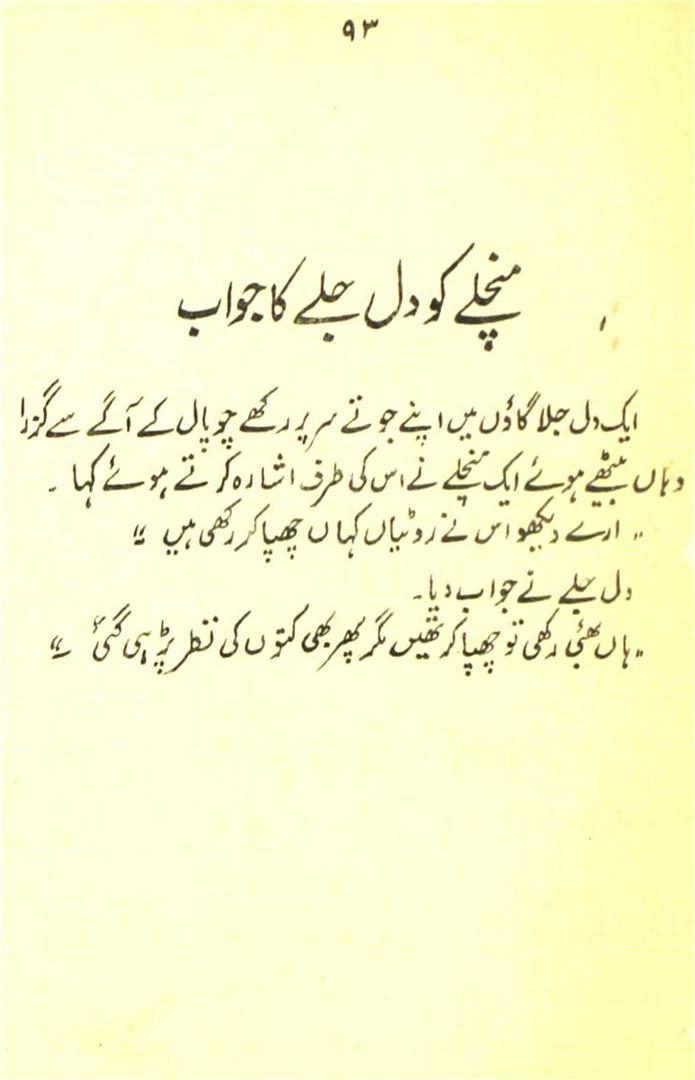 ۹۳
منچلے کو دل جلے کا جواب
ایک دل جلا گاؤں میں اپنے جوتے سر پر رکھے چوپال کے آگے سے گزرا
وہاں بیٹھے ہوئے ایک منچلے نے اس کی طرف اشارہ کرتے ہوئے کہا ۔
" ارے دیکھو اس نے روٹیاں کہاں چھپا کر رکھی ہیں "
دل جلے نے جواب دیا۔
"ہاں بھئی رکھی تو چھپا کر تھیں مگر پھر بھی کتوں کی نظر پڑ ہی گئی ۔"